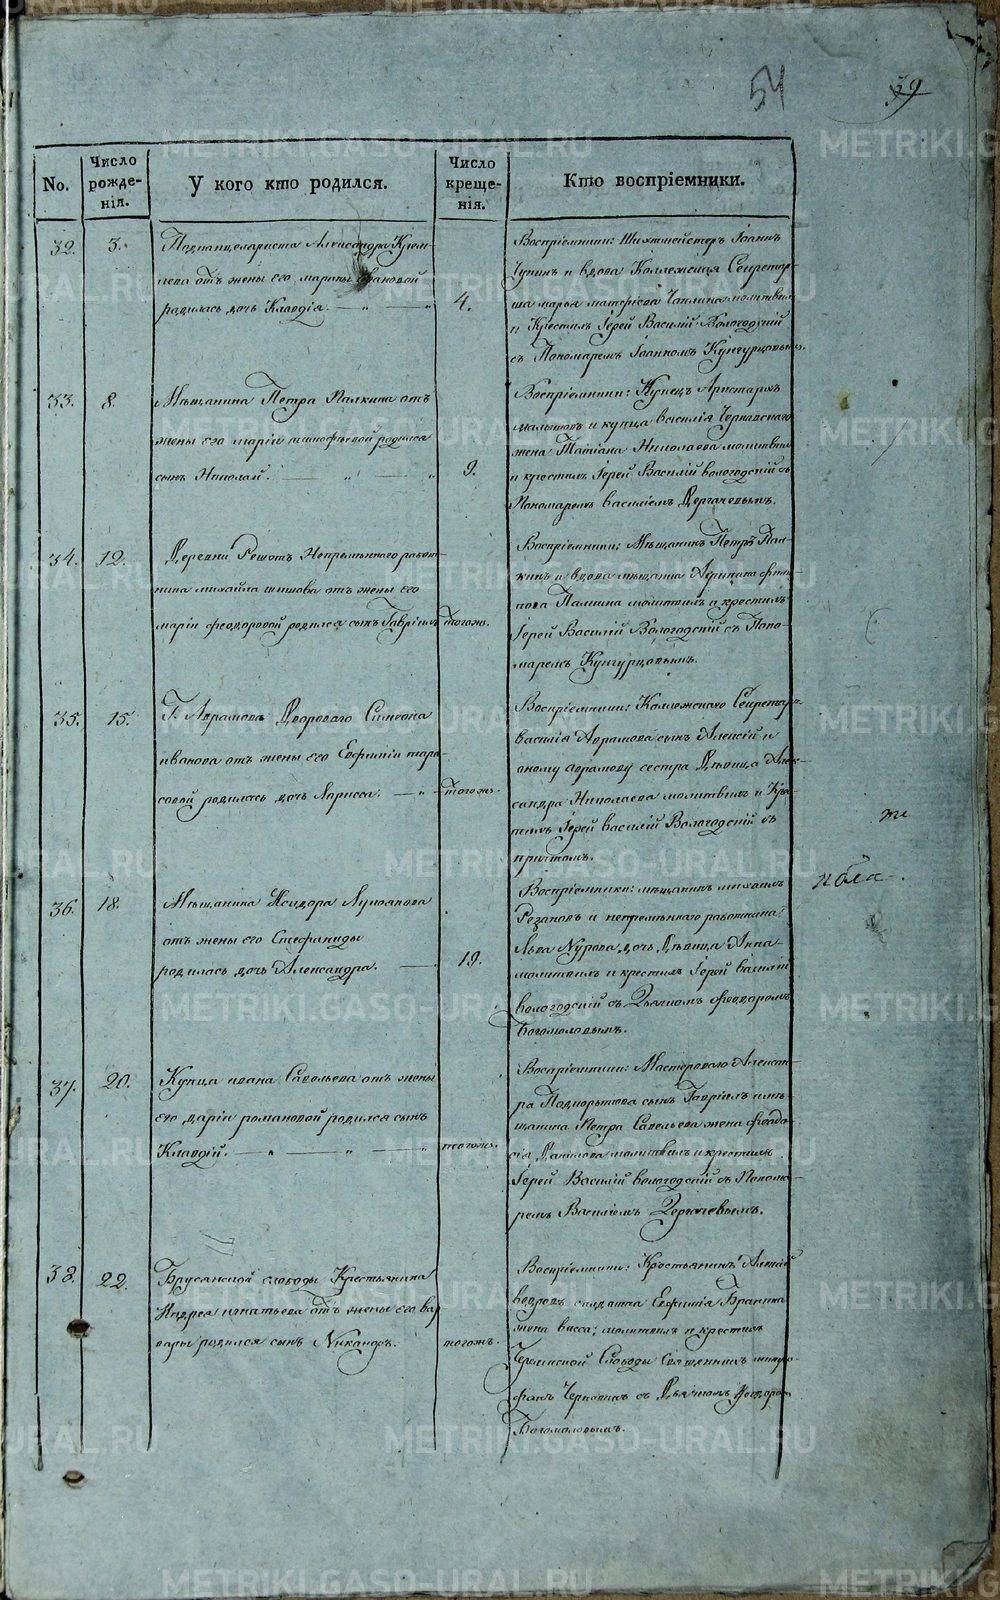 54
39
No.
Число рожде-нія.
У кого кто родился.
Число креще-нія.
Кто воспріемники.
32.
3.
Подканцеляриста Александра
отъ жены его Марѳы Ивановой
родилась дочь Клавдія.
4.
Воспріемники: Шихтмейстеръ Іоаннъ
и вдова Коллежская Секретар-
ша Марья Матѳѣева молитвилъ
и Крестилъ Іерей Василій Вологодскій
съ Пономаремъ Іоанномъ Кунгурцовымъ.
33.
8.
Мѣщанина Петра Палкина отъ
жены его Маріи Тимоѳѣевой родился
сынъ Николай.
9.
Воспріемники: Купецъ Аристархъ
и купца Василія
жена Татіана Николаева молитвилъ
и крестилъ Іерей Василій Вологодскій съ
Пономаремъ Василіемъ Дергачевымъ.
34.
12.
Деревни Решотъ Непремѣннаго работ-
ника Михайла Шишова отъ жены его
Маріи Ѳеодоровой родился сынъ Гавріилъ
тогожъ.
Воспріемники: Мѣщанинъ Петръ Пал-
кинъ и вдова
молитвилъ и крестилъ
Іерей Василій Вологодскій съ Поно-
маремъ Кунгурцовымъ.
35.
15.
Г. Аврамова Двороваго Симеона
Иванова отъ жены его Евфиміи Тара-
совой родилась дочь Лариса.
тогожъ.
Воспріемники: Коллежскаго Секретаря
Василія Аврамова сынъ Алексій и
оному Аврамову сестра Дѣвица Алек-
сандра Николаева молитвилъ и Кре-
тилъ Іерей Василій Вологодскій съ
притомъ.
же
36.
18.
Мѣщанина Исидора
отъ жены его Стефаниды
родилась дочь Александра.
19.
Воспріемники: мѣщанинъ Михаилъ
Резановъ и непремѣннаго работника
Льва дочь Дѣвица Анна
молитвилъ и крестилъ Іерей Василій
Вологодскій съ Дьячкомъ Ѳеодоромъ
Богомоловымъ.
37.
20.
Купца Ивана Савельева отъ жены
его Даріи Романовой родился сынъ
Клавдій.
тогожъ.
Воспріемники: Мастероваго Алексан-
ра Подкорытова сынъ Гавріилъ и мѣ-
щанина Петра Савельева жена Ѳеодо-
сія Данилова молитвилъ и крестилъ
Іерей Василій Вологодскій съ Понома-
ремъ Василіемъ Дергачевымъ.
38.
22.
Брусянской слободы Крестьянина
Андрея Игнатьева отъ жены его Вар
вары родился сынъ Никаноръ.
тогожъ.
Воспріемники: Крестьянинъ
солдата Евфимія
жена Васса; молитвилъ и крестилъ
Слободы Священникъ Митро-
фанъ съ Дьячкомъ Ѳеодоромъ
Богомоловымъ.
METRIKI.GASO-URAL.RU